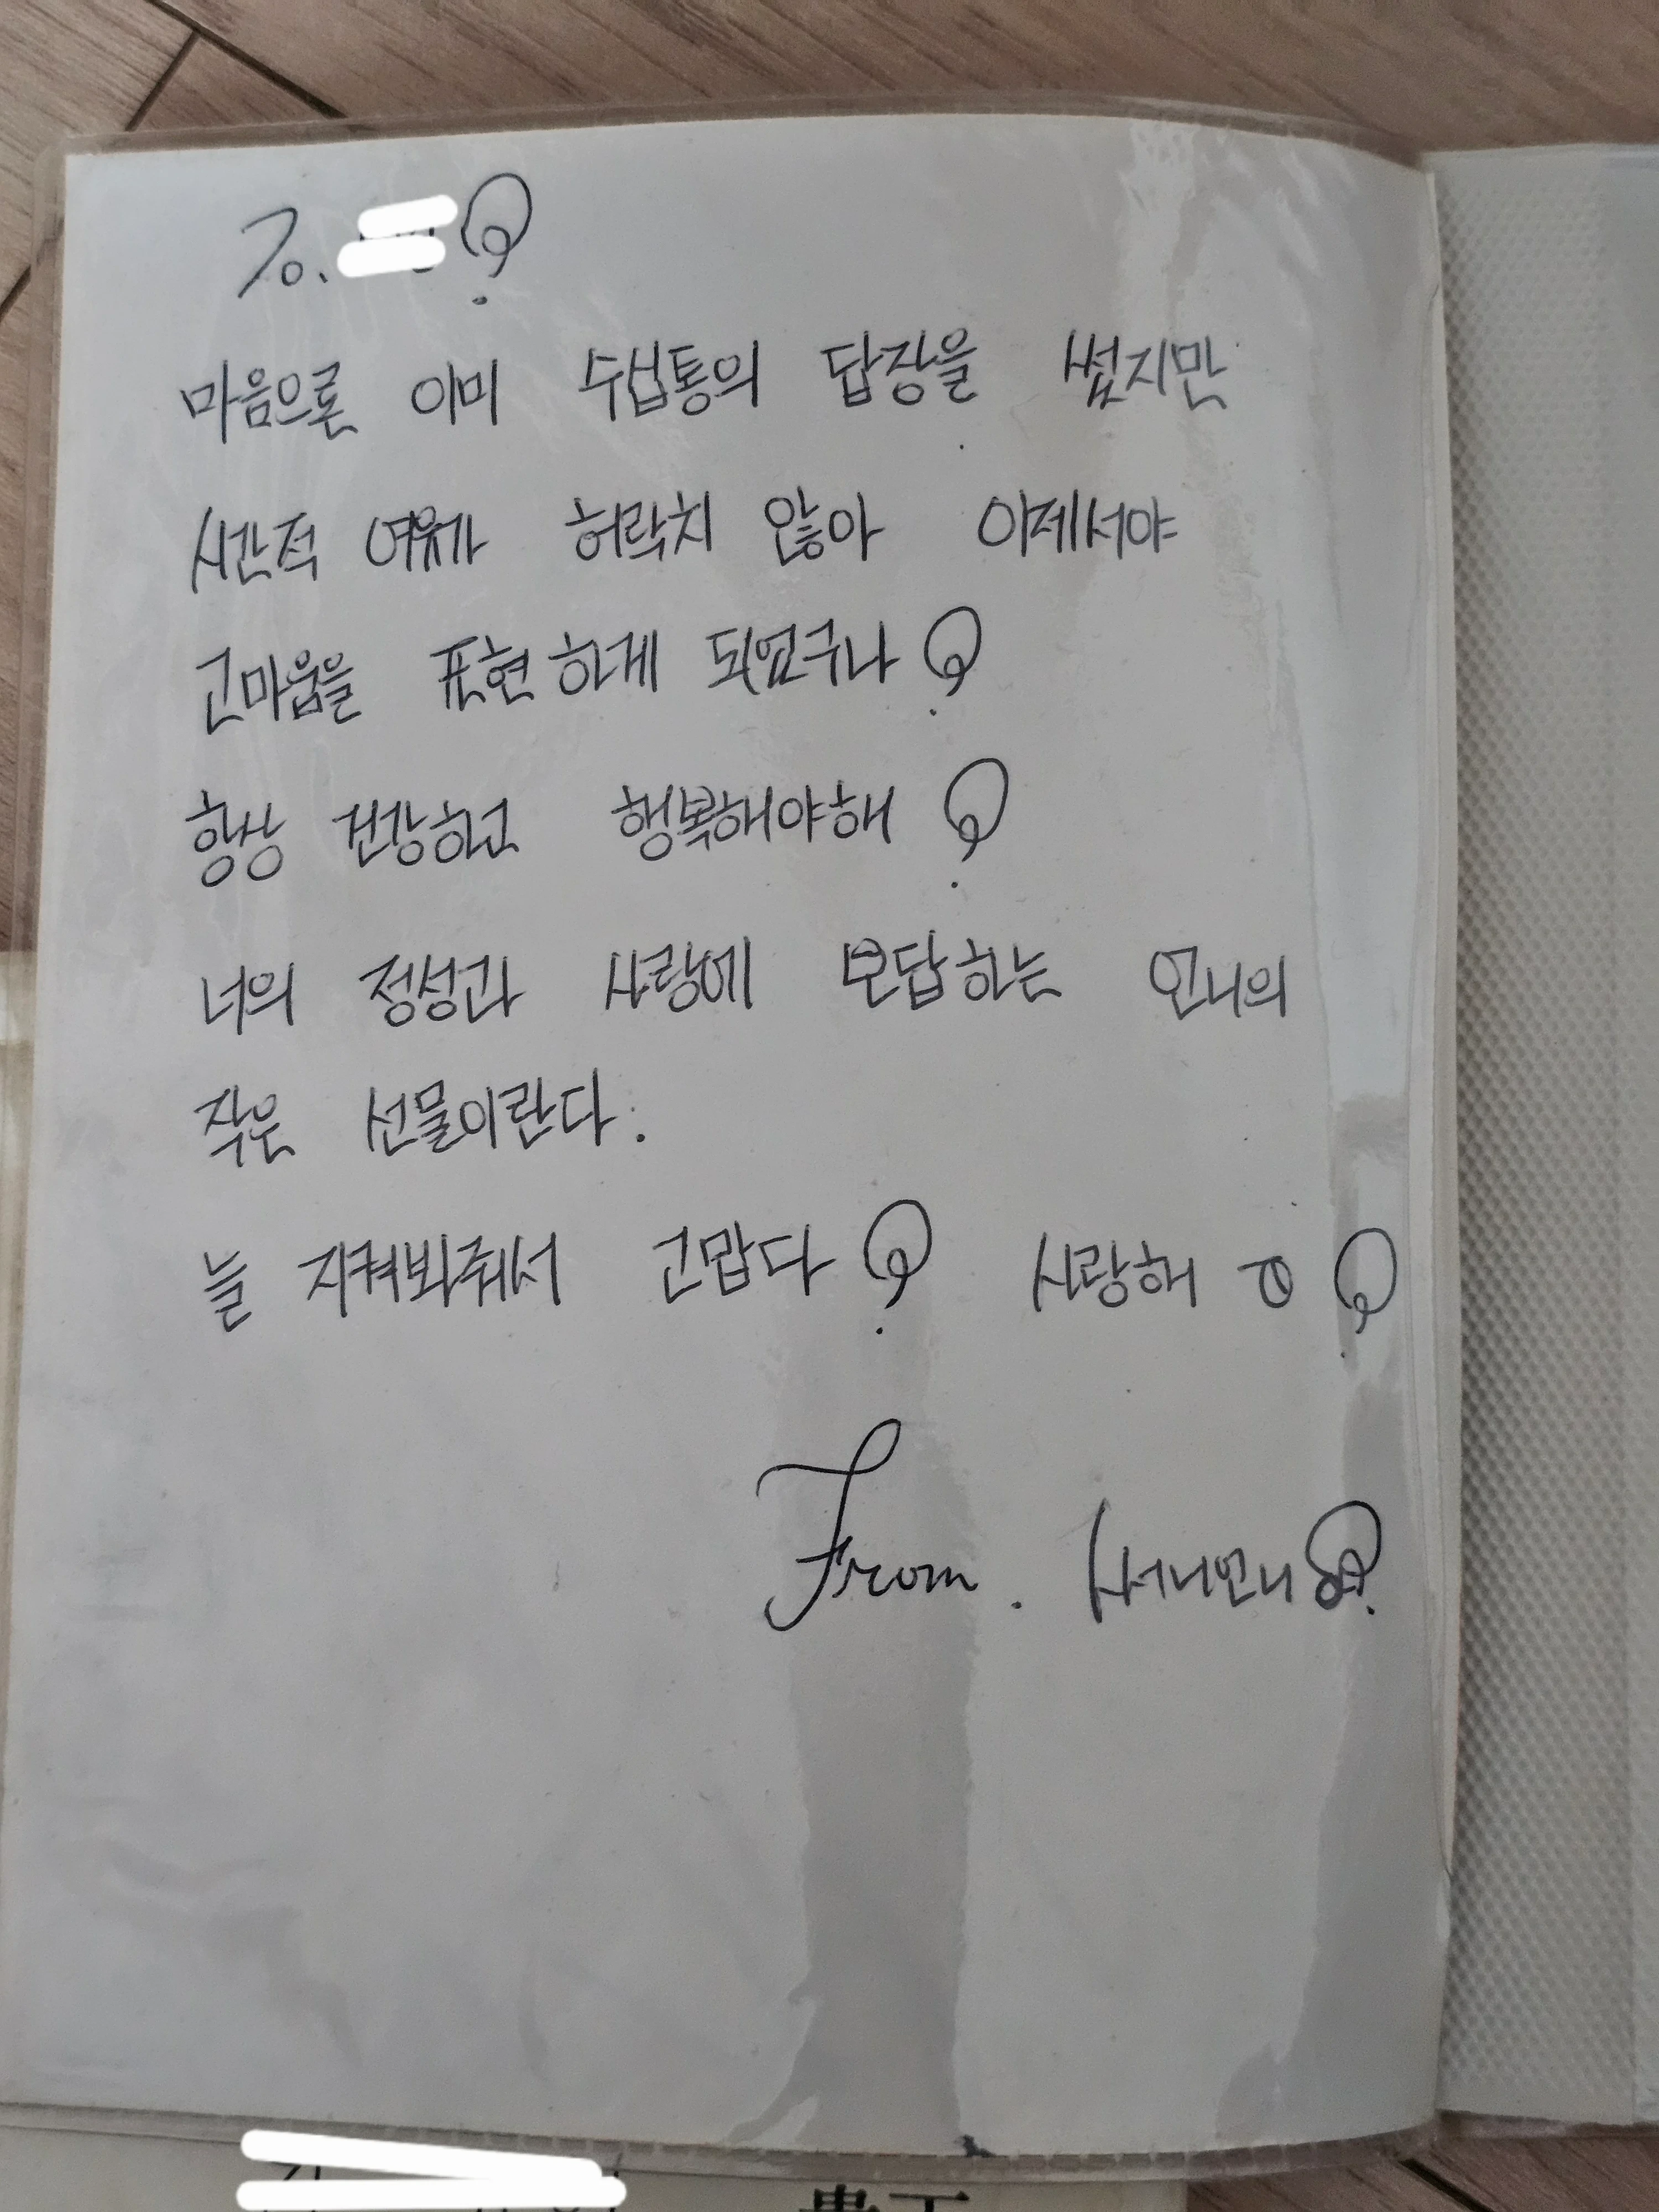 To.
마음으론 이미 수십통의 답장을 썼지만
시간적 여유가 허락치 않아 이제서야
고마움을 표현하게 되었구나
항상 건강하고 행복해야해
너의 정성과 사랑에 보답하는 언니의
작은 선물이란다.
늘 지켜봐줘서 고맙다 사랑해요
From. 써니언니